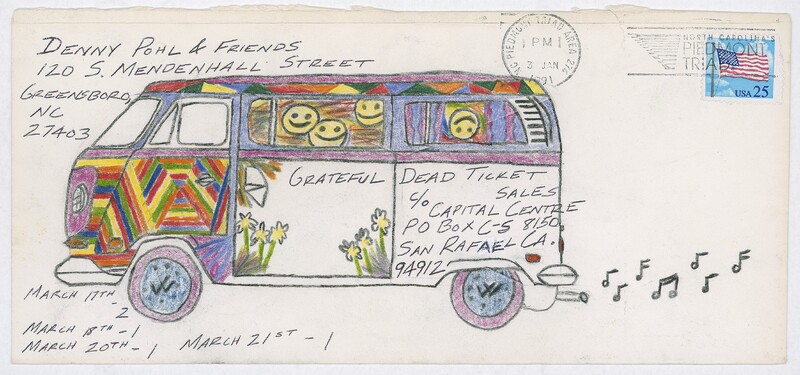 DENNY POHL & FRIENDS
120 S. MENDENHALL STREET
GREENSBORO,
NC
27403
NC PIEDMONT TRIAD AREA 274
PM
3 JAN
1991
NORTH CAROLINA'S
PIEDMONT
TRIAD
USA 25
GRATEFUL DEAD TICKET
SALES
c/o CAPITAL CENTRE
PO BOX C-S 8150,
SAN RAFAEL CA.
94912
MARCH 17TH
- 2
MARCH 18TH - 1
MARCH 20TH - 1 MARCH 21ST - 1